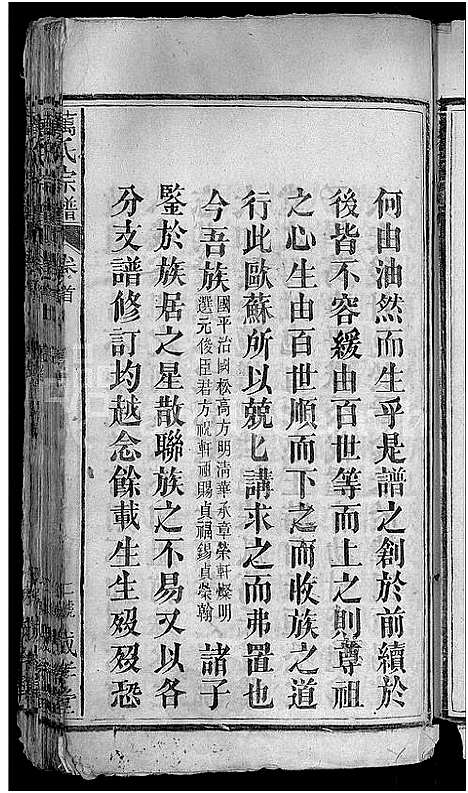 何由油然而生乎是譜之創於前續於
後皆不容緩由百世等而上之則尊祖
之心生由百世順而下之而收族之道
行此歐蘇所以兢匕講求之而弗置也
今吾族國平治國松高方明清華承章榮軒燦明
選元俊臣君方禎軒頑賜貞福錫貞榮翰諸子
鍳於族居之星散聯族之不易又以各
分支譜修訂均越念餘載生生殁殁恐
萬氏宗譜
卷首